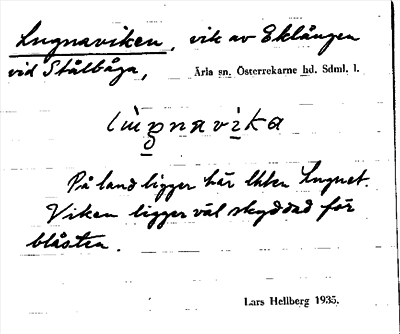 Lugnaviken, vik av Eklången
vid Stålbåga, Ärla sn. Österrekarne hd. Sdml. l.
lùgnavika
På land ligger här lhten Lugnet.
Viken ligger väl skyddad för
blåsten.
Lars Hellberg 1935.